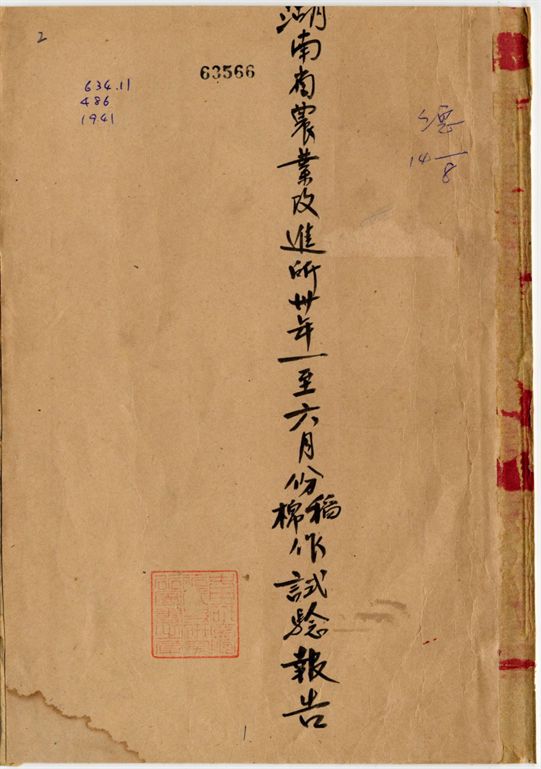 2
63566
634.11
486
1941
14
8
湖南省農業改進所卅年一至六月份稻棉作試驗報告
1